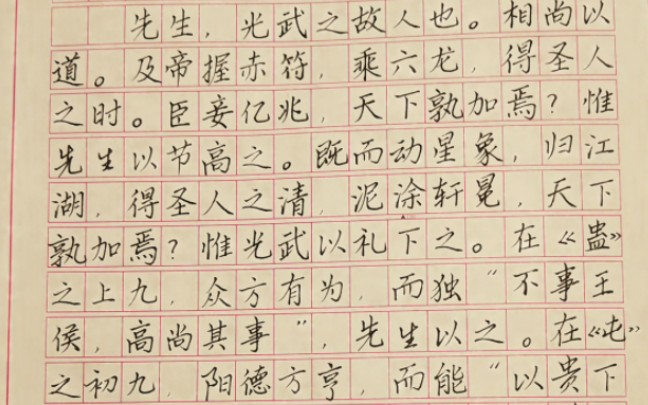 先生，光武之故人也。相尚以
道。及帝握赤符，乘六龙，得圣人
之时。臣妾亿兆，天下孰加焉？惟
先生以节高之。既而动星象，归江
湖，得圣人之清，泥涂轩冕，天下
孰加焉？惟光武以礼下之。在《蛊》
之上九，众方有为，而独“不事王
侯，高尚其事”，先生以之。在《屯》
之初九，阳德方亨，而能“以贵下